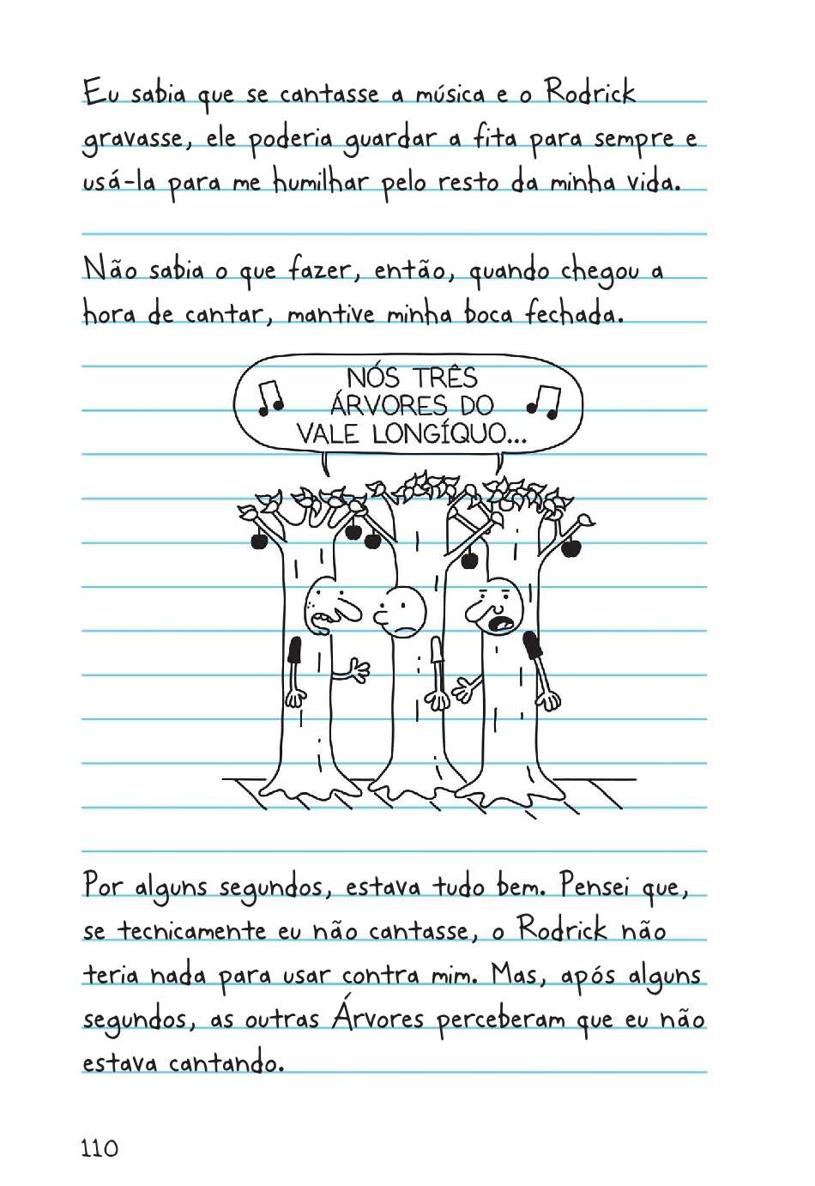 Eu sabia que se cantasse a música e o Rodrick
gravasse, ele poderia guardar a fita para sempre e
usá-la para me humilhar pelo resto da minha vida.
Não sabia o que fazer, então, quando chegou a
hora de cantar, mantive minha boca fechada.
NÓS TRÊS
ÁRVORES DO
VALE LONGÍQUO...
Por alguns segundos, estava tudo bem. Pensei que,
se tecnicamente eu não cantasse, o Rodrick não
teria nada para usar contra mim. Mas, após alguns
segundos, as outras Árvores perceberam que eu não
estava cantando.
110